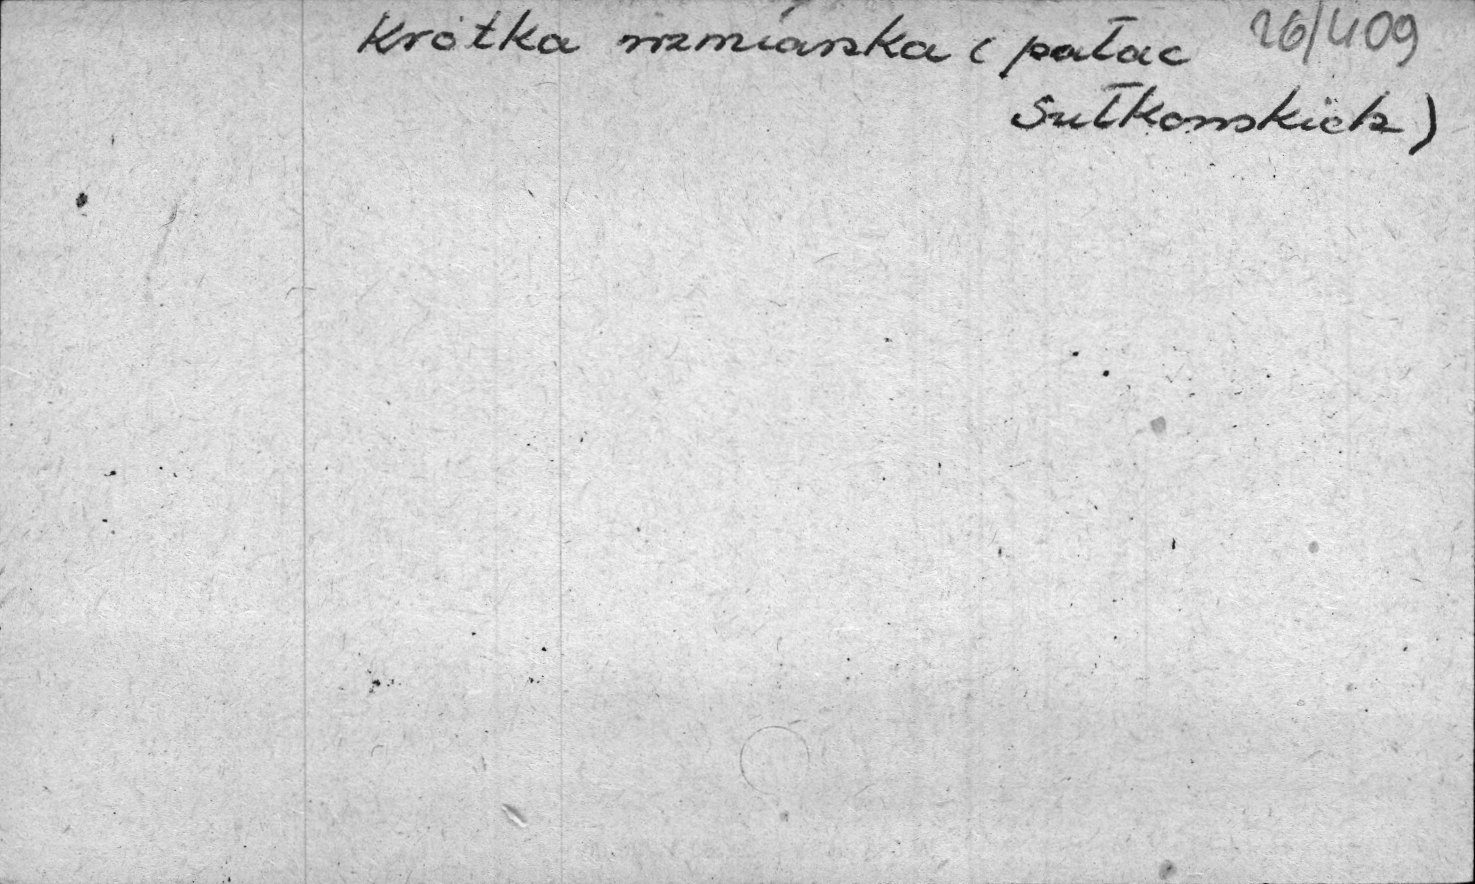 Krótka wzmianka (pałac 26/409
Sułkowskich)